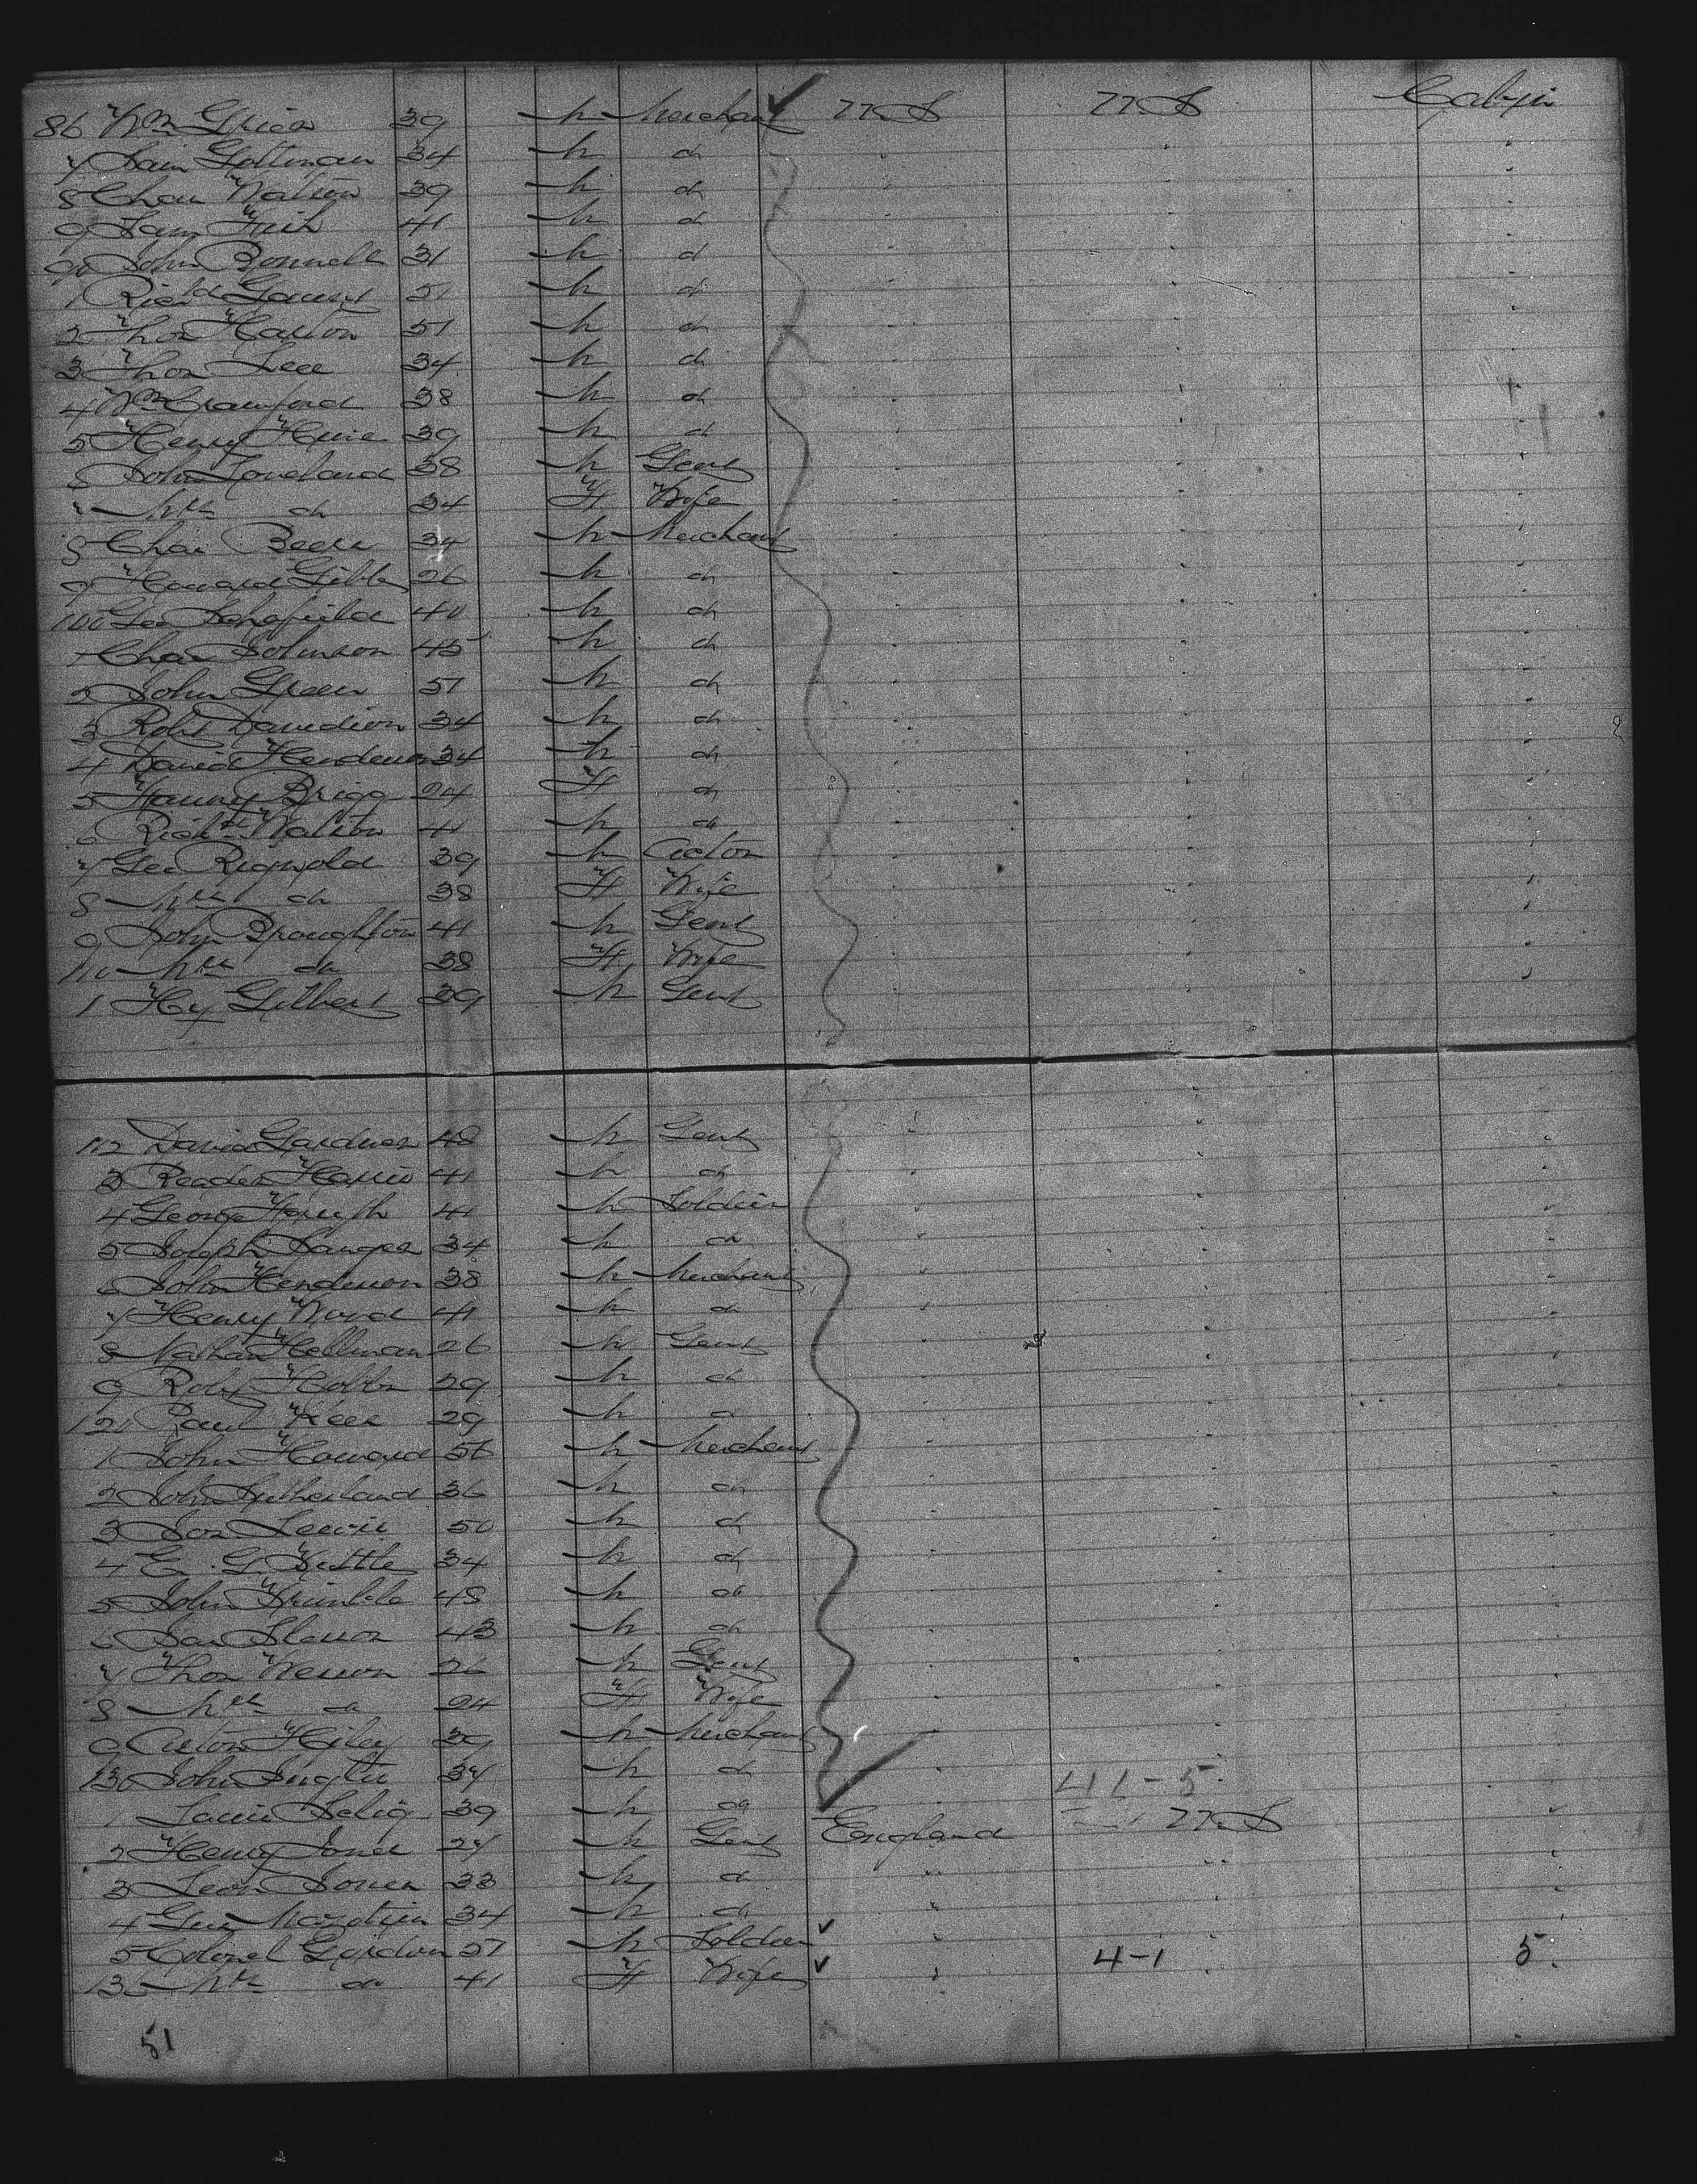 86 Wm Grier 39 m Merchant U.S U.S Cabin
7 Sam Goltman 34 m do
8 Chas Watson 39 m do
9 Sam Fish 41 m do
90 John Bonnell 31 m do
1 Richd Gaunt 51 m do
2 Thos Harton 51 m do
3 Thos Lee 34 m do
4 Wm Crawford 38 m do
5 Henry Huie 39 m do
6 John Loveland 38 m Gent
7 Mrs do 34 F Wife
8 Chas Beere 34 m Merchant
9 Howard Gibb 26 m do
100 Geo Schofield 40 m do
1 Chas Johnson 45 m do
2 John Green 51 m do
3 Robt Davidson 34 m do
4 David Henderson 34 m do
5 Fanny Brigg 24 F do
6 Richd Watson 41 m do
7 Geo Rignold 39 m Actor
8 Mrs do 38 F Wife
9 John Broughton 41 m Gent
110 Mrs do 38 F Wife
1 Hy Gilbert 39 m Gent
112 David Gardner 48 m Gent
3 Reader Harris 41 m do
4 George Hough 41 m Soldier
5 Joseph Sanger 34 m do
6 John Henderson 38 m Merchant
7 Henry Ward 41 m do
8 Nathan Hellman 26 m Gent
9 Robt Hobbs 29 m do
120 Paul Kee 29 m do
1 John Howard 56 m Merchant
2 John Sutherland 36 m do
3 Jos Lewis 50 m do
4 E. G. Kettle 34 m do
5 John Trimble 48 m do
6 Slesson 43 m do
7 Thos Wesson 26 m Gent
8 Mrs do 24 F Wife
9 Aston Hiley 39 m Merchant
130 John 37 m do 46-5
1 Louis Selig 39 m do
2 Henry Jones 27 m Gent England U.S
3 Leon Jones 33 m do
4 34 m do
5 Colonel Gordon 51 m Soldier
136 Mrs do 41 F Wife 4-1 5
51